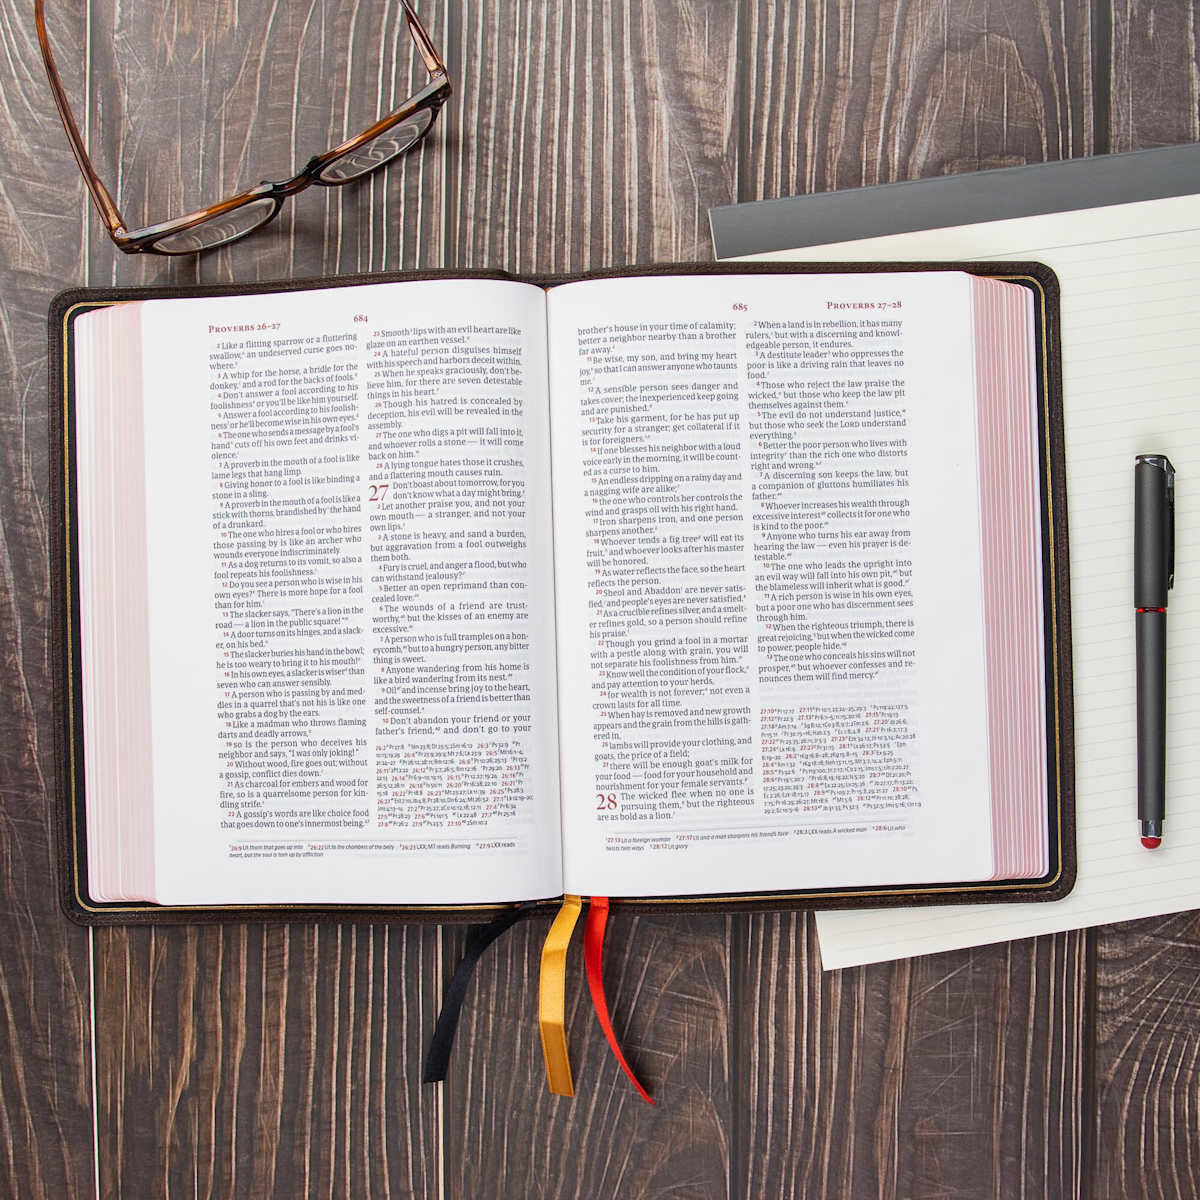 PROVERBS 26–27
684
2 Like a flitting sparrow or a fluttering
swallow, an undeserved curse goes no-
where.
3 A whip for the horse, a bridle for the
donkey, and a rod for the backs of fools.
4 Don't answer a fool according to his
foolishness or you'll be like him yourself.
5 Answer a fool according to his foolish-
ness or he'll become wise in his own eyes.
6 The one who sends a message by a fool's
hand cuts off his own feet and drinks vi-
olence.
7 A proverb in the mouth of a fool is like
lame legs that hang limp.
8 Giving honor to a fool is like binding a
stone in a sling.
9 A proverb in the mouth of a fool is like a
stick with thorns, brandished by the hand
of a drunkard.
10 The one who hires a fool or who hires
those passing by is like an archer who
wounds everyone indiscriminately.
11 As a dog returns to its vomit, so also a
fool repeats his foolishness.
12 Do you see a person who is wise in his
own eyes? There is more hope for a fool
than for him.
13 The slacker says, "There's a lion in the
road — a lion in the public square!"
14 A door turns on its hinges, and a slack-
er, on his bed.
15 The slacker buries his hand in the bowl;
he is too weary to bring it to his mouth!
16 In his own eyes, a slacker is wiser than
seven who can answer sensibly.
17 A person who is passing by and med-
dles in a quarrel that's not his is like one
who grabs a dog by the ears.
18 Like a madman who throws flaming
darts and deadly arrows,
19 so is the person who deceives his
neighbor and says, "I was only joking!"
20 Without wood, fire goes out; without
a gossip, conflict dies down.
21 As charcoal for embers and wood for
fire, so is a quarrelsome person for kin-
dling strife.
22 A gossip's words are like choice food
that goes down to one's innermost being.
23 Smooth lips with an evil heart are like
glaze on an earthen vessel.
24 A hateful person disguises himself
with his speech and harbors deceit within.
25 When he speaks graciously, don't be-
lieve him, for there are seven detestable
things in his heart.
26 Though his hatred is concealed by
deception, his evil will be revealed in the
assembly.
27 The one who digs a pit will fall into it,
and whoever rolls a stone — it will come
back on him.
28 A lying tongue hates those it crushes,
and a flattering mouth causes ruin.
27 Don't boast about tomorrow, for you
don't know what a day might bring.
2 Let another praise you, and not your
own mouth — a stranger, and not your
own lips.
3 A stone is heavy, and sand, a burden,
but aggravation from a fool outweighs
them both.
4 Fury is cruel, and anger a flood, but who
can withstand jealousy?
5 Better an open reprimand than con-
cealed love.
6 The wounds of a friend are trust-
worthy, but the kisses of an enemy are
excessive.
7 A person who is full tramples on a hon-
eycomb, but to a hungry person, any bitter
thing is sweet.
8 Anyone wandering from his home is
like a bird wandering from its nest.
9 Oil and incense bring joy to the heart,
and the sweetness of a friend is better than
self-counsel.
10 Don't abandon your friend or your
father's friend, and don't go to your
26:9 Lit them that goes up into
26:22 Lit to the chambers of the belly
26:23 LXX; MT reads Burning
27:9 LXX reads
heart, but the soul is torn up by affliction
685
PROVERBS 27–28
brother's house in your time of calamity;
better a neighbor nearby than a brother
far away.
11 Be wise, my son, and bring my heart
joy, so that I can answer anyone who taunts
me.
12 A sensible person sees danger and
takes cover; the inexperienced keep going
and are punished.
13 Take his garment, for he has put up
security for a stranger; get collateral if it
is for foreigners.
14 If one blesses his neighbor with a loud
voice early in the morning, it will be count-
ed as a curse to him.
15 An endless dripping on a rainy day and
a nagging wife are alike;
16 the one who controls her controls the
wind and grasps oil with his right hand.
17 Iron sharpens iron, and one person
sharpens another.
18 Whoever tends a fig tree will eat its
fruit, and whoever looks after his master
will be honored.
19 As water reflects the face, so the heart
reflects the person.
20 Sheol and Abaddon are never satis-
fied, and people's eyes are never satisfied.
21 As a crucible refines silver, and a smelt-
er refines gold, so a person should refine
his praise.
22 Though you grind a fool in a mortar
with a pestle along with grain, you will
not separate his foolishness from him.
23 Know well the condition of your flock,
and pay attention to your herds,
24 for wealth is not forever; not even a
crown lasts for all time.
25 When hay is removed and new growth
appears and the grain from the hills is gath-
ered in,
26 lambs will provide your clothing, and
goats, the price of a field;
27 there will be enough goat's milk for
your food — food for your household and
nourishment for your female servants.
28 The wicked flee when no one is
pursuing them, but the righteous
are as bold as a lion.
2 When a land is in rebellion, it has many
rulers, but with a discerning and knowl-
edgeable person, it endures.
3 A destitute leader who oppresses the
poor is like a driving rain that leaves no
food.
4 Those who reject the law praise the
wicked, but those who keep the law pit
themselves against them.
5 The evil do not understand justice,
but those who seek the LORD understand
everything.
6 Better the poor person who lives with
integrity than the rich one who distorts
right and wrong.
7 A discerning son keeps the law, but
a companion of gluttons humiliates his
father.
8 Whoever increases his wealth through
excessive interest collects it for one who
is kind to the poor.
9 Anyone who turns his ear away from
hearing the law — even his prayer is de-
testable.
10 The one who leads the upright into
an evil way will fall into his own pit, but
the blameless will inherit what is good.
11 A rich person is wise in his own eyes,
but a poor one who has discernment sees
through him.
12 When the righteous triumph, there is
great rejoicing, but when the wicked come
to power, people hide.
13 The one who conceals his sins will not
prosper, but whoever confesses and re-
nounces them will find mercy.
27:13 Lit a foreign woman
27:17 Lit and a man sharpens his friend's face
28:3 LXX reads A wicked man
28:6 Lit who
twists two ways
28:12 Lit glory